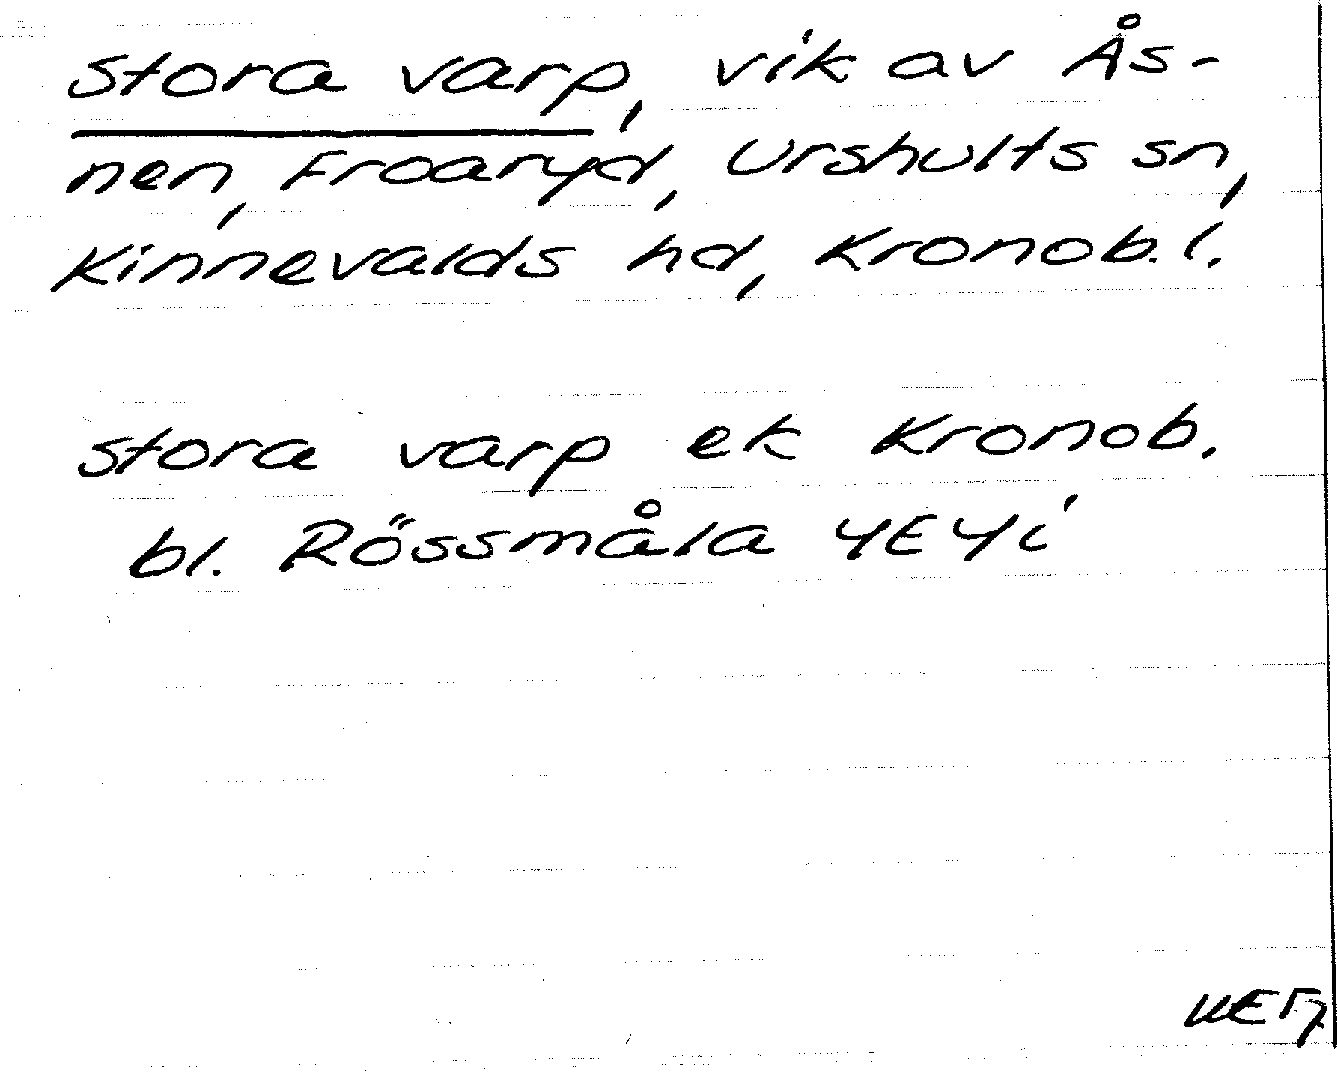 stora varp, vik av Ås-
nen, Froaryd, Urshults sn,
Kinnevalds hd, Kronob. l.
stora varp ek Kronob.
bl. Rössmåla 4E4i